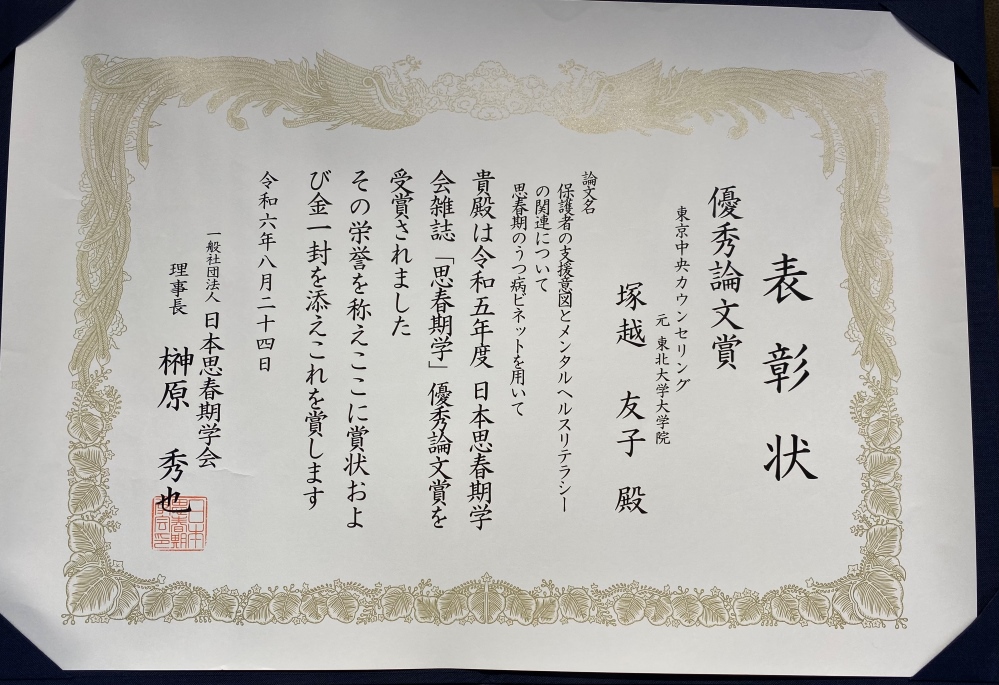 表彰状
優秀論文賞
東京中央カウンセリング
元 東北大学大学院
塚越 友子 殿
論文名
保護者の支援意図とメンタルヘルスリテラシー
の関連について
思春期のうつ病ビネットを用いて
貴殿は令和五年度 日本思春期学
会雑誌「思春期学」優秀論文賞を
受賞されました
その栄誉を称えここに賞状およ
び金一封を添えこれを賞します
令和六年八月二十四日
一般社団法人 日本思春期学会
理事長 榊原 秀也
日本
思春期
学会印